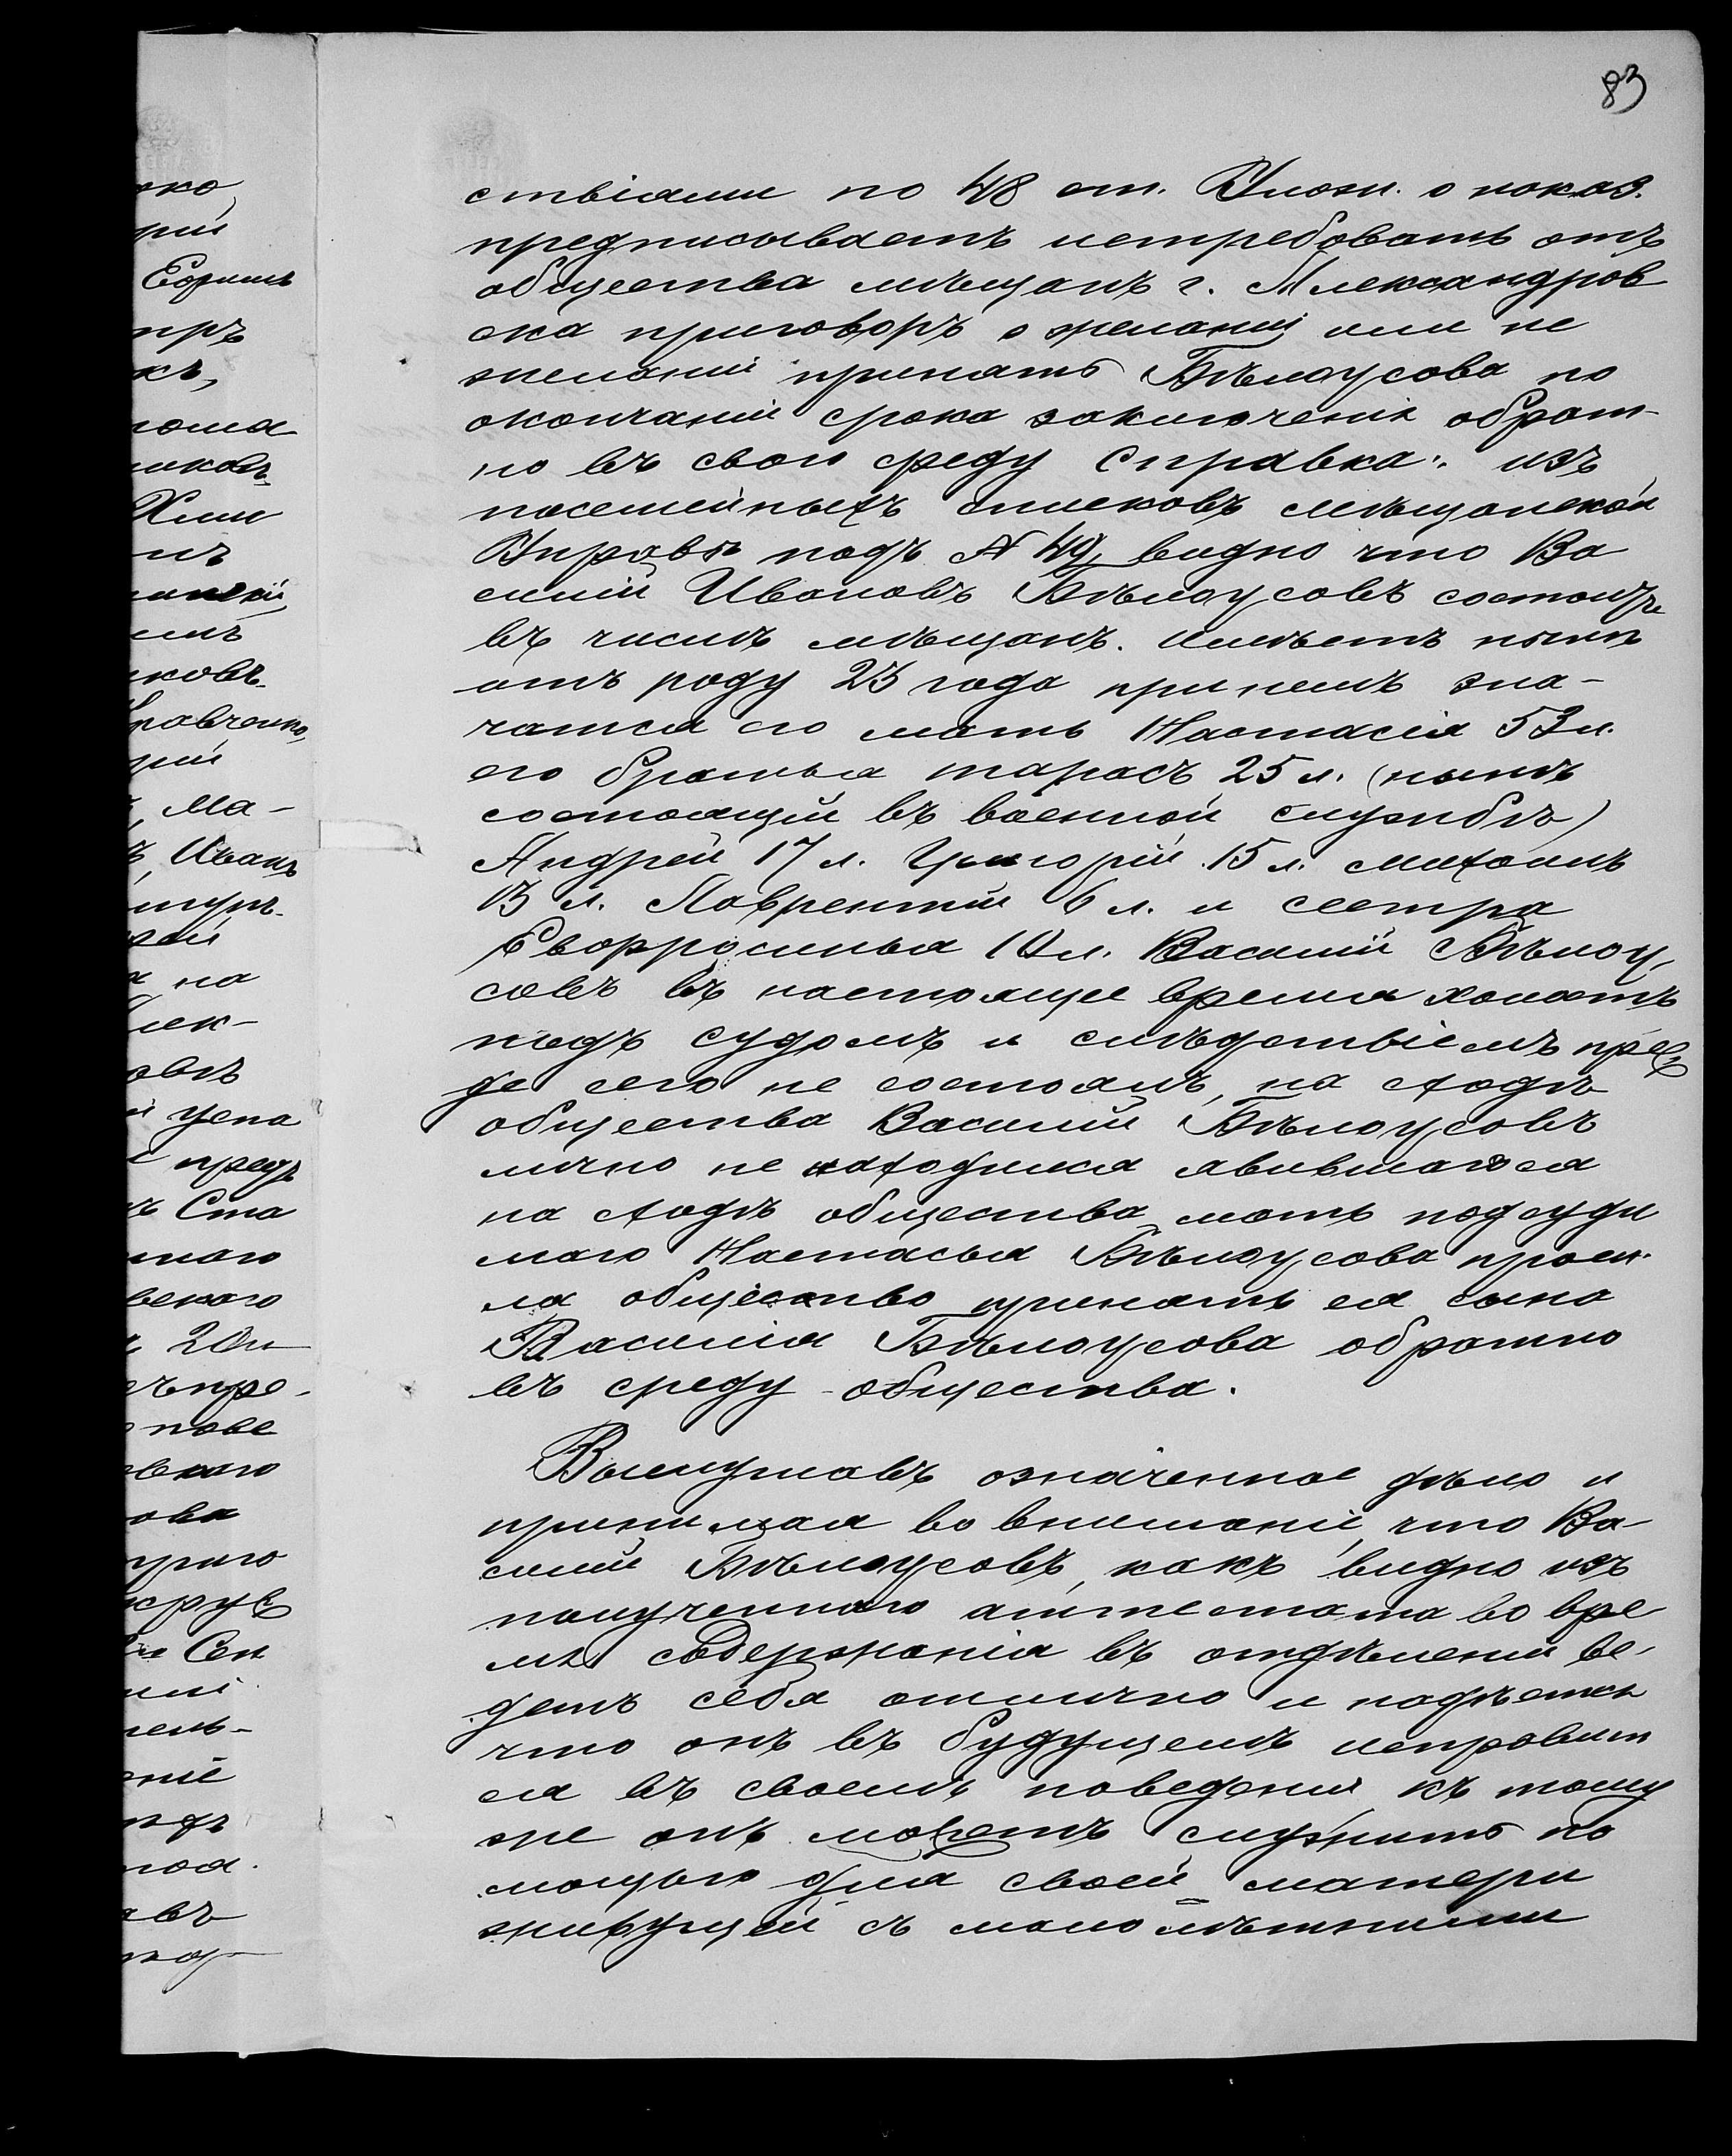 83
ствіями по 48 ст. Улож. о наказ.
предписываетъ истребовать отъ
общества мѣщанъ г. Александров
ска приговоръ о желаніи или не
желаніи принять Бѣлоусова по
окончаніи срока заключенія обрат-
но въ свою среду Справка: изъ
посемейныхъ списковъ мѣщанской
Управы подъ № 49, видно что Ва
силій Ивановъ Бѣлоусовъ состоитъ
въ числѣ мѣщанъ. имѣетъ нынѣ
отъ роду 23 года при немъ зна-
чатся его мать Настасія 53 л.
его братья тарасъ 25 л. (нынѣ
состоящій въ военной службѣ)
Андрей 17 л. Григорій 15 л. михаилъ
13 л. Лаврентій 6 л. и сестра
Евфросинья 10 л. Василій Бѣлоу-
совъ въ настоящее время холостъ
подъ судомъ и слѣдствіемъ преж
де сего не состоялъ, на сходѣ
общества Василій Бѣлоусовъ
лично не находился явившаяся
на сходъ общества мать подсуди
маго Настасья Бѣлоусова проси-
ла общество принять ея сына
Василія Бѣлоусова обратно
въ среду общества.
Выслушавъ означенное дѣло и
принимая во вниманіе, что Ва-
силій Бѣлоусовъ, какъ видно изъ
полученнаго аттестата во вре
мя содержанія въ отдѣленіи ве-
детъ себя отлично и надѣется
что онъ въ будущемъ исправит
ся въ своемъ поведеніи, къ тому
же онъ можетъ служить по
мощью для своей матери
живущей съ малолѣтними
око
рій
Ефимъ
тръ
къ,
иковъ
ковъ.
равченко,
рій
, Ма-
, Иванъ
на
лек-
овъ
и цепа
предъ
ъ Ста
наго
векаго
пове
векаго
ова
круж
Сен
тель-
ніе
авъ